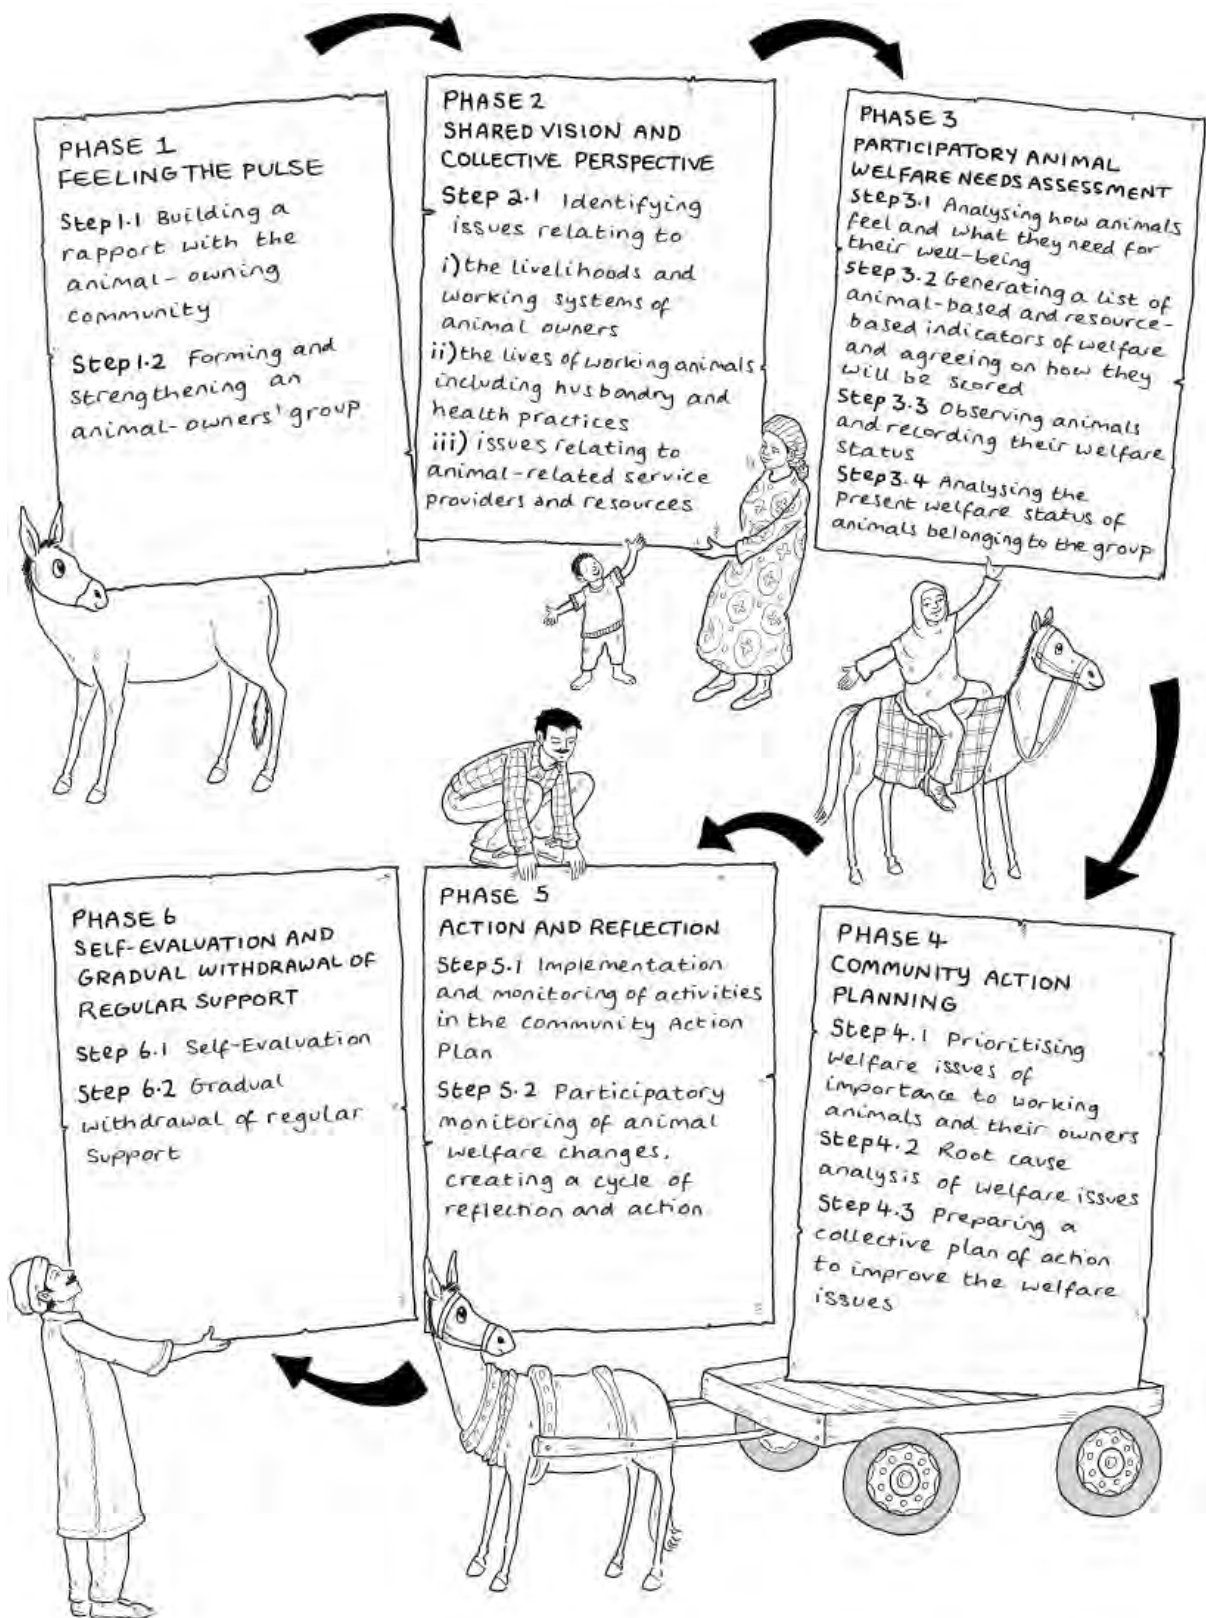 PHASE 1
FEELING THE PULSE
Step 1.1 Building a
rapport with the
animal-owning
community
Step 1.2 Forming and
strengthening an
animal-owners' group
PHASE 2
SHARED VISION AND
COLLECTIVE PERSPECTIVE
Step 2.1 Identifying
issues relating to
i) the livelihoods and
working systems of
animal owners
ii) the lives of working animals
including husbandry and
health practices
iii) issues relating to
animal-related service
providers and resources
PHASE 3
PARTICIPATORY ANIMAL
WELFARE NEEDS ASSESSMENT
Step 3.1 Analysing how animals
feel and what they need for
their well-being
Step 3.2 Generating a list of
animal-based and resource-
based indicators of welfare
and agreeing on how they
will be scored
Step 3.3 Observing animals
and recording their welfare
status
Step 3.4 Analysing the
present welfare status of
animals belonging to the group
PHASE 4
COMMUNITY ACTION
PLANNING
Step 4.1 Prioritising
welfare issues of
importance to working
animals and their owners
Step 4.2 Root cause
analysis of welfare issues
Step 4.3 Preparing a
collective plan of action
to improve the welfare
issues
PHASE 5
ACTION AND REFLECTION
Step 5.1 Implementation
and monitoring of activities
in the Community Action
Plan
Step 5.2 Participatory
monitoring of animal
welfare changes,
creating a cycle of
reflection and action
PHASE 6
SELF-EVALUATION AND
GRADUAL WITHDRAWAL OF
REGULAR SUPPORT
Step 6.1 Self-Evaluation
Step 6.2 Gradual
withdrawal of regular
support